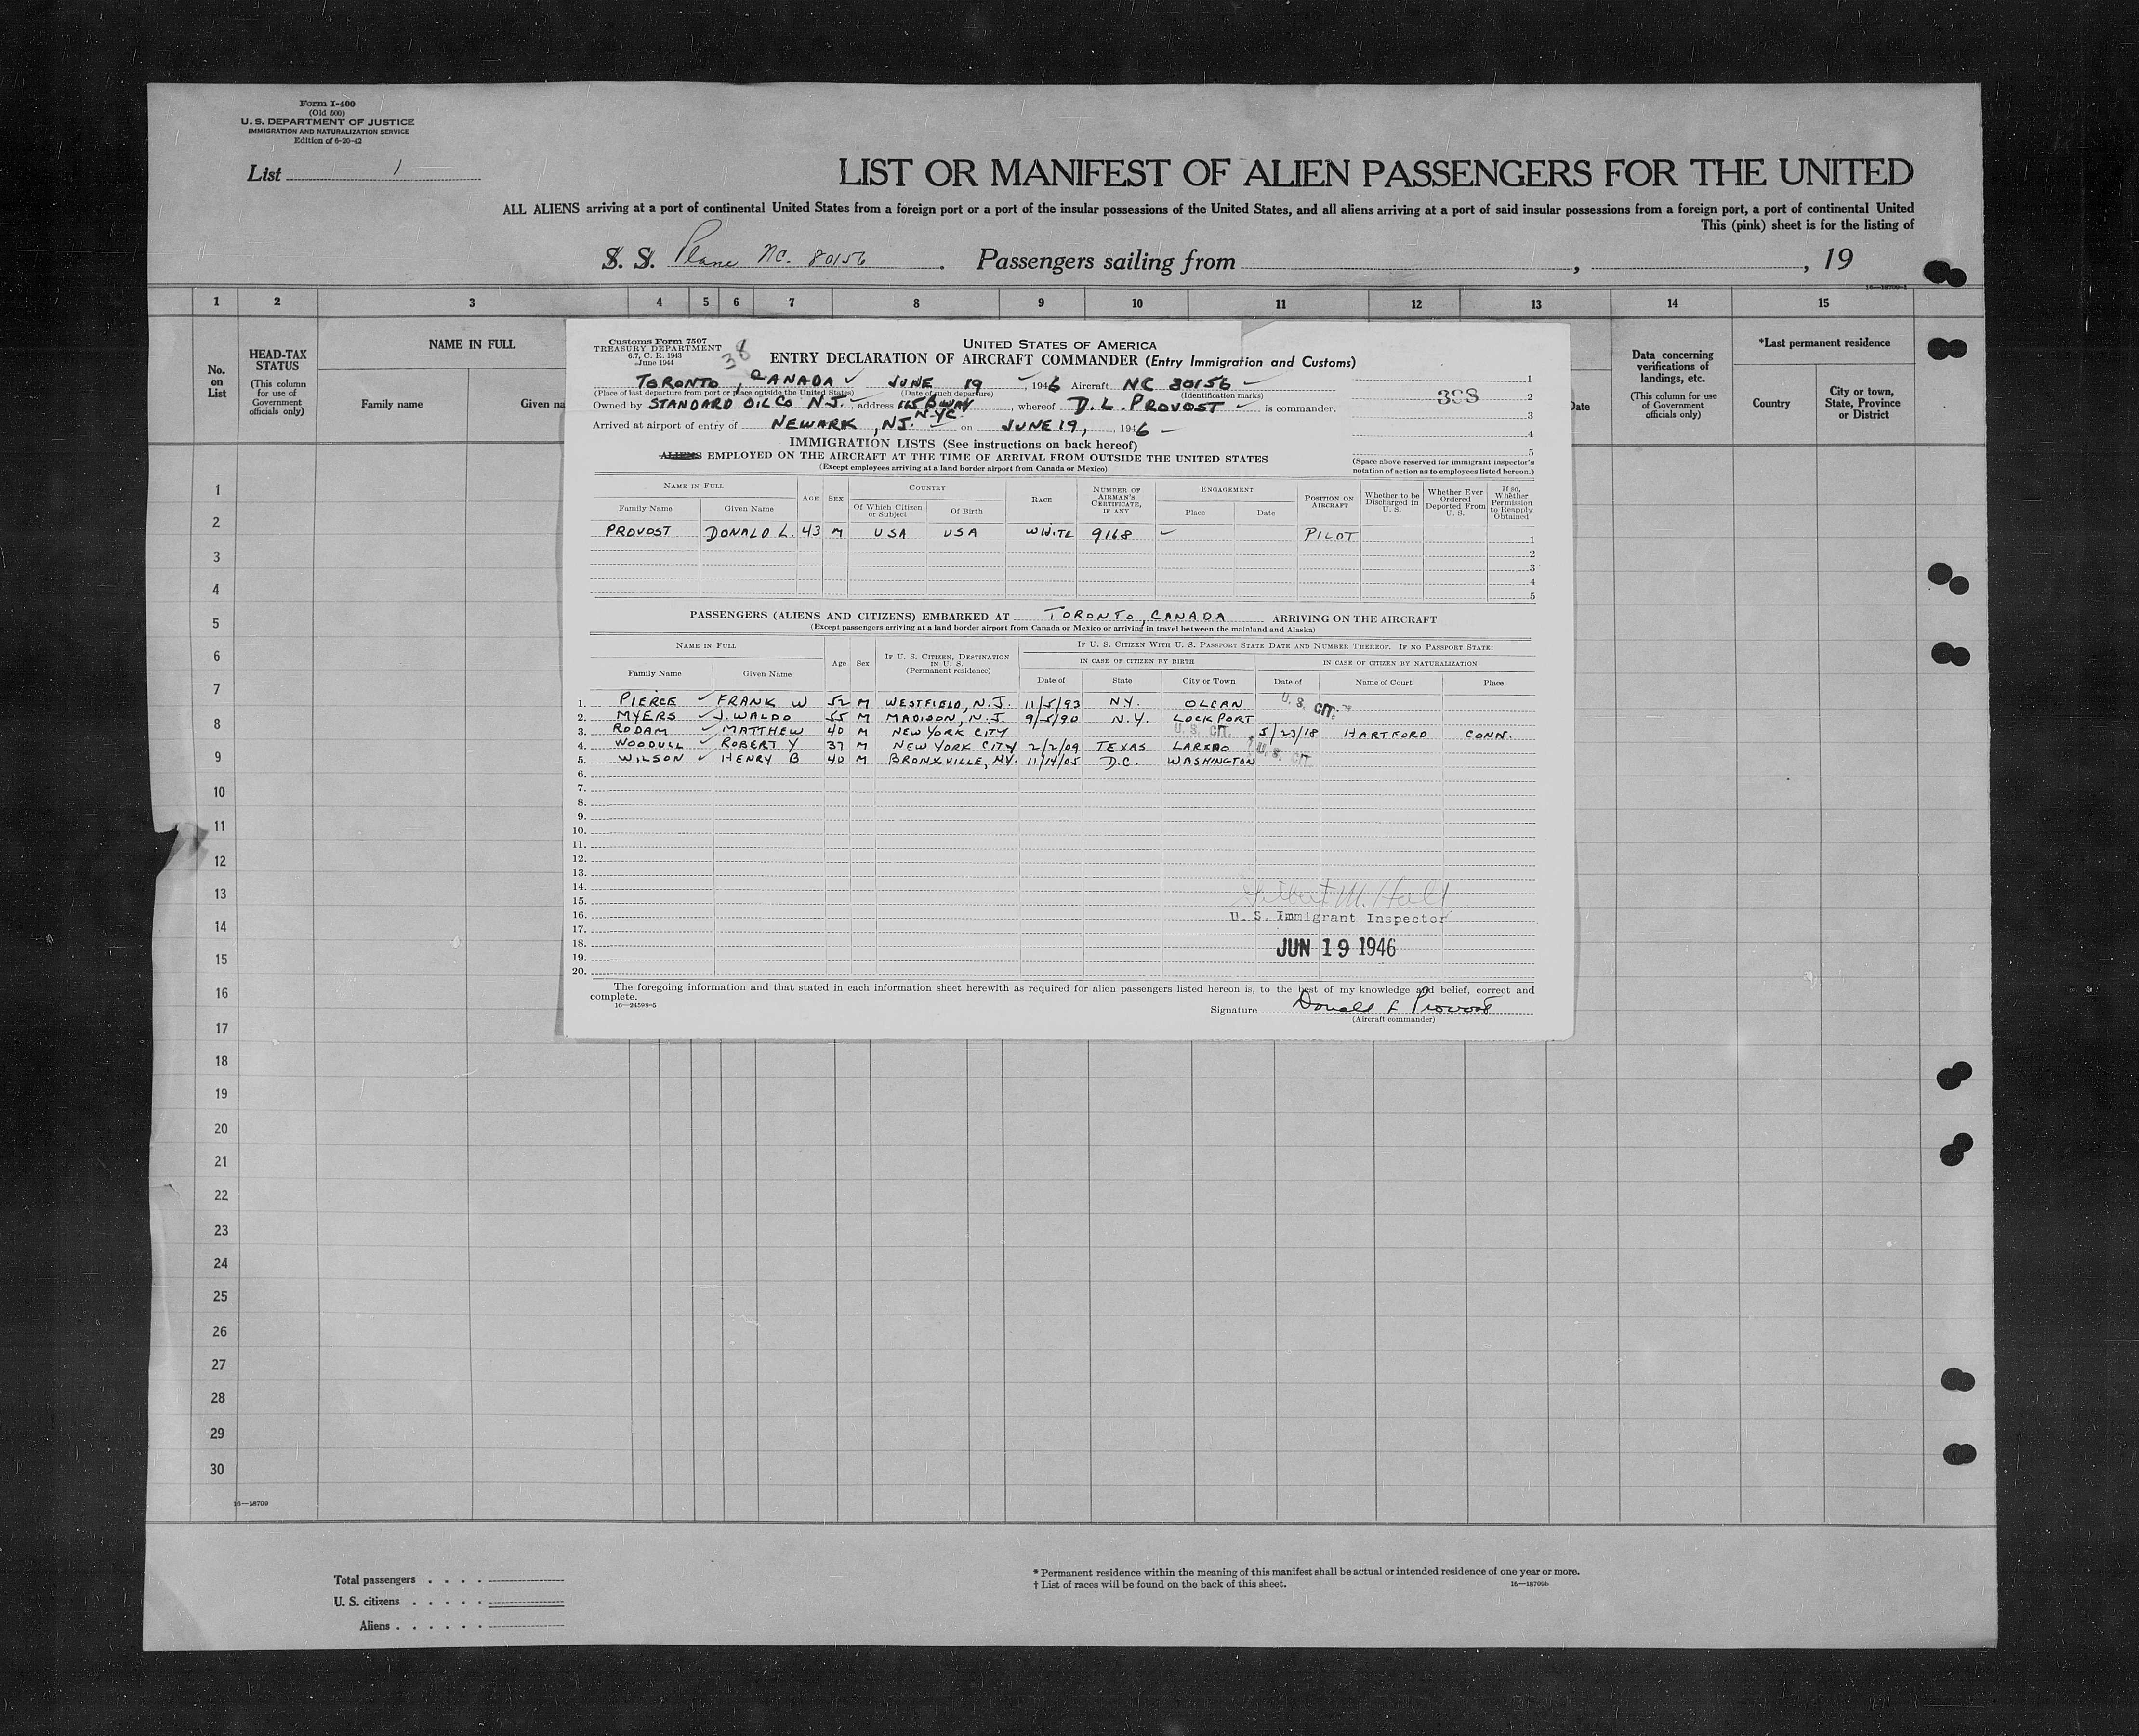 Form I-400
(Old 500)
U. S. DEPARTMENT OF JUSTICE
IMMIGRATION AND NATURALIZATION SERVICE
Edition of 6-20-42
List 1
LIST OR MANIFEST OF ALIEN PASSENGERS FOR THE UNITED
ALL ALIENS arriving at a port of continental United States from a foreign port or a port of the insular possessions of the United States, and all aliens arriving at a port of said insular possessions from a foreign port, a port of continental United
This (pink) sheet is for the listing of
S. S. Plane NC. 80156. Passengers sailing from , , 19
16—18709-1
1 2 3 4 5 6 7 8 9 10 11 12 13 14 15
No. on List
HEAD-TAX STATUS
(This column for use of Government officials only)
NAME IN FULL
Family name Given na
Date
Data concerning verifications of landings, etc.
(This column for use of Government officials only)
*Last permanent residence
Country
City or town, State, Province or District
Customs Form 7507
TREASURY DEPARTMENT
6.7, C. R. 1943
June 1944
38
UNITED STATES OF AMERICA
ENTRY DECLARATION OF AIRCRAFT COMMANDER (Entry Immigration and Customs)
TORONTO, CANADA JUNE 19, 1946 Aircraft NC 80156
(Place of last departure from port or place outside the United States) (Date of such departure) (Identification marks)
Owned by STANDARD OIL CO N.J., address 165 B'WAY N.YC., whereof D. L. PROVOST is commander.
Arrived at airport of entry of NEWARK, N.J. on JUNE 19, 1946
1
398 2
3
4
5
(Space above reserved for immigrant inspector's notation of action as to employees listed hereon.)
IMMIGRATION LISTS (See instructions on back hereof)
ALIENS EMPLOYED ON THE AIRCRAFT AT THE TIME OF ARRIVAL FROM OUTSIDE THE UNITED STATES
(Except employees arriving at a land border airport from Canada or Mexico)
NAME IN FULL AGE SEX COUNTRY RACE NUMBER OF AIRMAN'S CERTIFICATE, IF ANY ENGAGEMENT POSITION ON AIRCRAFT Whether to be Discharged in U. S. Whether Ever Ordered Deported From U. S. If so, Whether Permission to Reapply Obtained
Family Name Given Name Of Which Citizen or Subject Of Birth Place Date
PROVOST DONALD L. 43 M USA USA WHITE 9168 PILOT 1
2
3
4
5
PASSENGERS (ALIENS AND CITIZENS) EMBARKED AT TORONTO, CANADA ARRIVING ON THE AIRCRAFT
(Except passengers arriving at a land border airport from Canada or Mexico or arriving in travel between the mainland and Alaska)
NAME IN FULL Age Sex IF U. S. CITIZEN, DESTINATION IN U. S. (Permanent residence) IF U. S. CITIZEN WITH U. S. PASSPORT STATE DATE AND NUMBER THEREOF. IF NO PASSPORT STATE:
IN CASE OF CITIZEN BY BIRTH IN CASE OF CITIZEN BY NATURALIZATION
Family Name Given Name Date of State City or Town Date of Name of Court Place
1. PIERCE FRANK W 52 M WESTFIELD, N.J. 11/5/93 N.Y. OLEAN U. S. CIT.
2. MYERS J. WALDO 55 M MADISON, N.J. 9/5/90 N.Y. LOCKPORT
3. RODAM MATTHEW 40 M NEW YORK CITY U. S. CIT. 5/23/18 HARTFORD CONN.
4. WOODULL ROBERT Y 37 M NEW YORK CITY 2/2/09 TEXAS LAREDO U. S. CIT.
5. WILSON HENRY B 40 M BRONXVILLE, N.Y. 11/14/05 D.C. WASHINGTON
6.
7.
8.
9.
10.
11.
12.
13.
14.
15.
16.
17.
18.
19.
20.
U. S. Immigrant Inspector
JUN 19 1946
The foregoing information and that stated in each information sheet herewith as required for alien passengers listed hereon is, to the best of my knowledge and belief, correct and
complete.
16—24598-5
Signature Donald L Provost
(Aircraft commander)
1
2
3
4
5
6
7
8
9
10
11
12
13
14
15
16
17
18
19
20
21
22
23
24
25
26
27
28
29
30
16—18709
Total passengers . . . .
U. S. citizens . . . . .
Aliens . . . . . .
* Permanent residence within the meaning of this manifest shall be actual or intended residence of one year or more.
† List of races will be found on the back of this sheet.
16—18709b